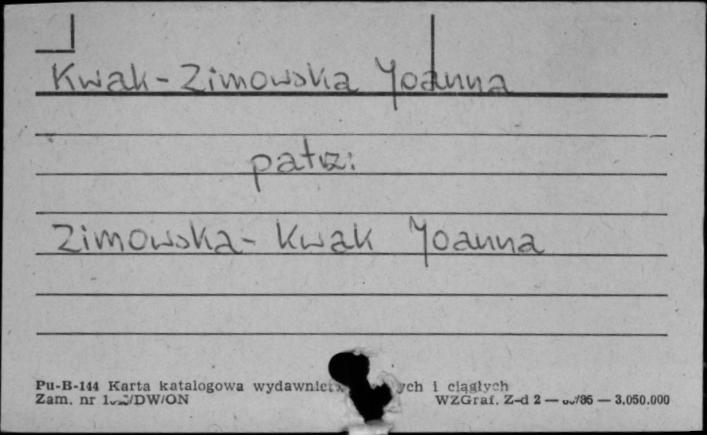 Kwak-Zimowska Joanna
patrz:
Zimowska-Kwak Joanna
Pu-B-144 Karta katalogowa i ciągłych
Zam. nr WZGraf. Z-d 2 — — 3.050.000